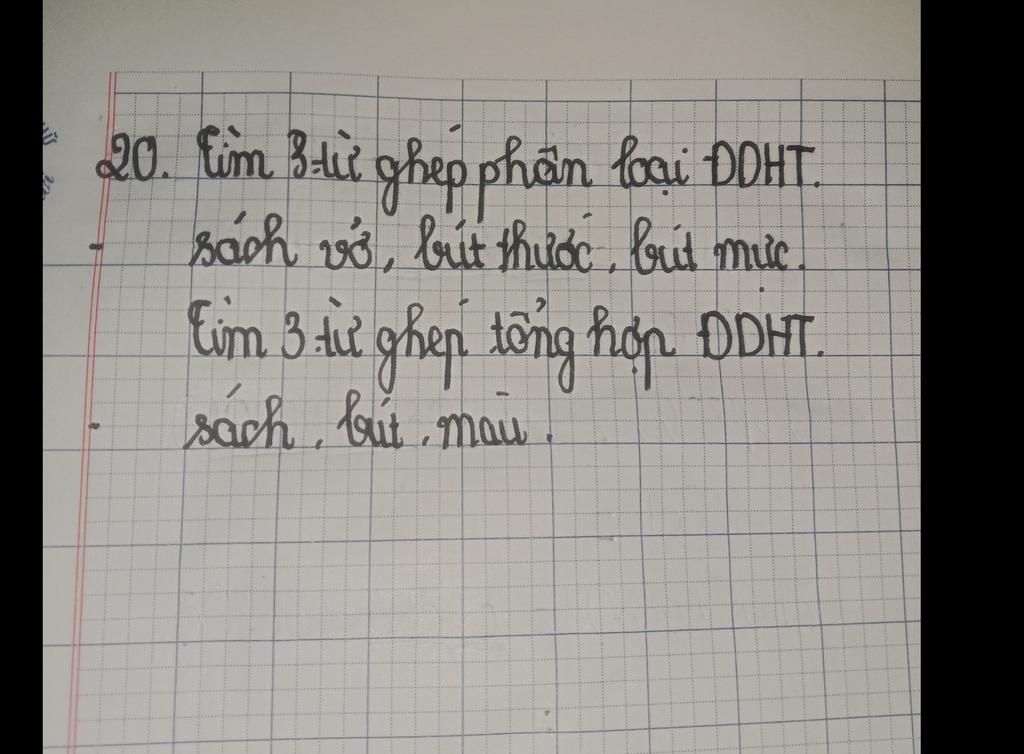 20. Tìm 3 từ ghép phân loại ĐDHT.
- sách vở, bút thước, bút mực.
Tìm 3 từ ghép tổng hợp ĐDHT.
- sách, bút, màu.